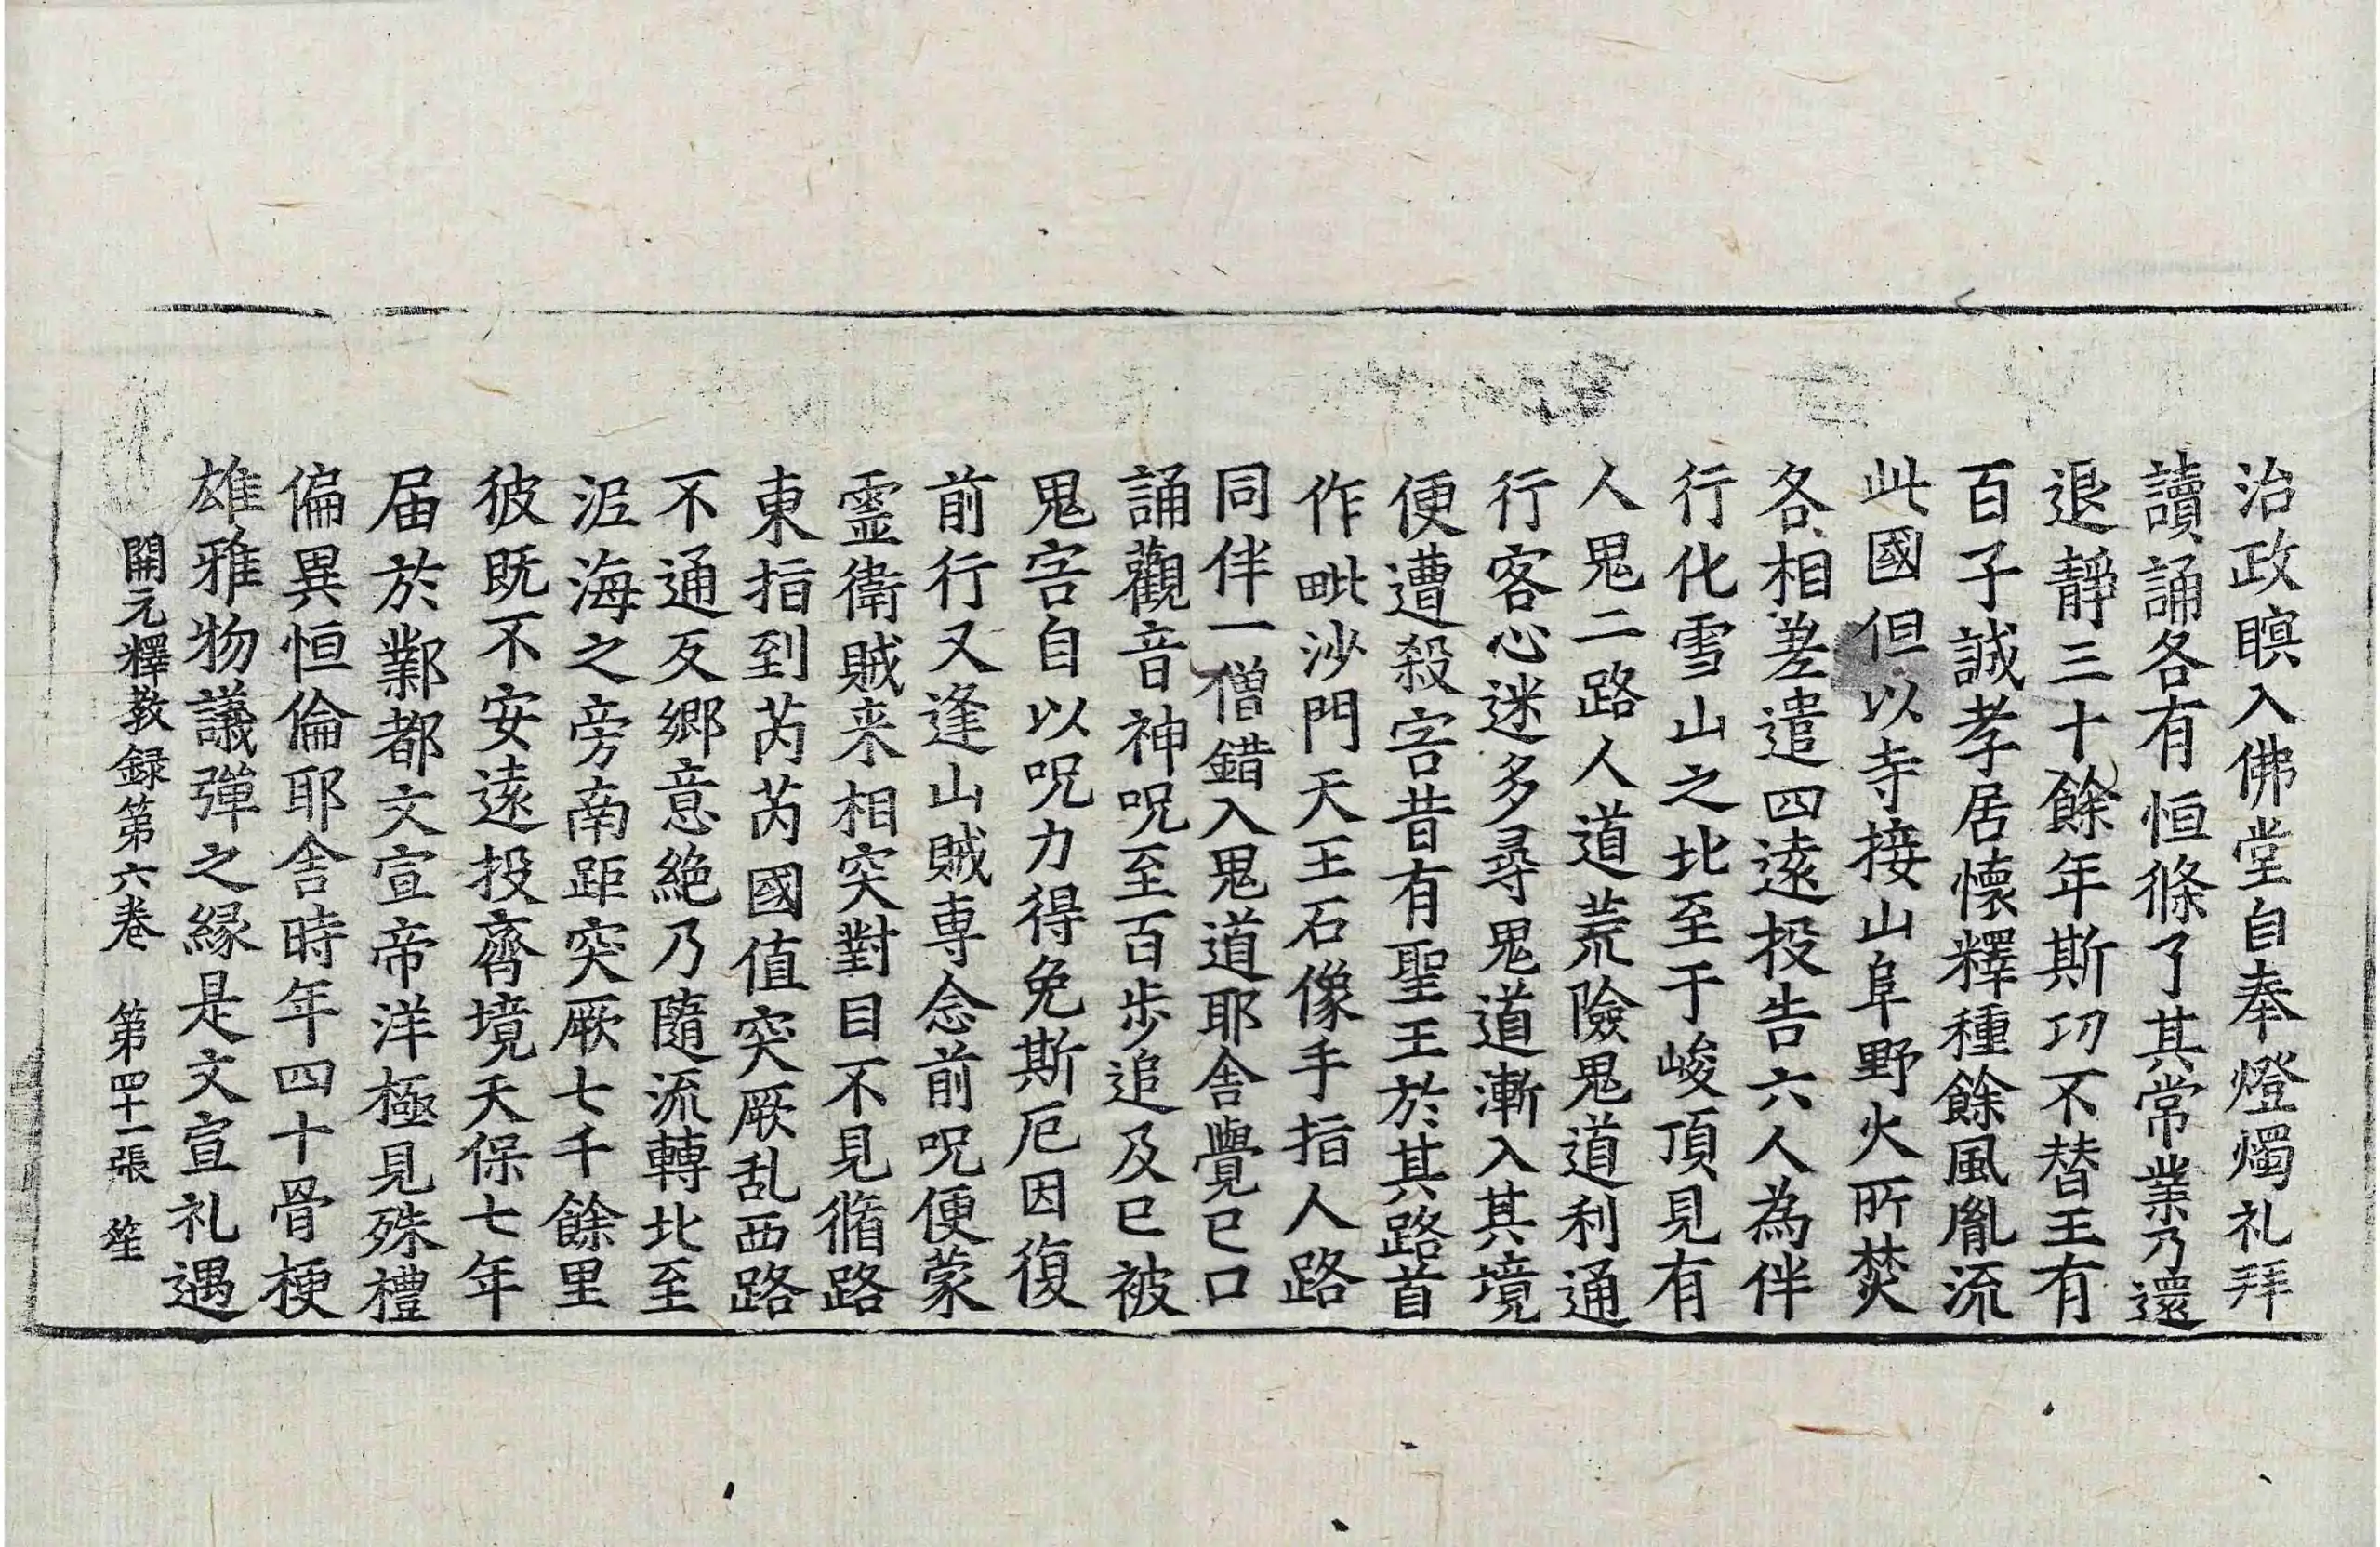 治政瞑入佛堂自奉燈燭礼拜
讀誦各有恒條了其常業乃還
退靜三十餘年斯功不替王有
百子誠孝居懷釋種餘風胤流
此國但以寺接山阜野火所焚
各相差遣四遠投告六人為伴
行化雪山之北至于峻頂見有
人鬼二路人道荒險鬼道利通
行客心迷多尋鬼道漸入其境
便遭殺害昔有聖王於其路首
作毗沙門天王石像手指人路
同伴一僧錯入鬼道耶舍覺已口
誦觀音神呪至百步追及已被
鬼害自以呪力得免斯厄因復
前行又逢山賊專念前呪便蒙
靈衛賊来相突對目不見循路
東指到芮芮國值突厥乱西路
不通反鄉意絶乃隨流轉北至
泥海之旁南距突厥七千餘里
彼既不安遠投齊境天保七年
届於鄴都文宣帝洋極見殊禮
偏異恒倫耶舍時年四十骨梗
雄雅物議彈之緣是文宣礼遇
開元釋教録第六卷 第四十二張 笙